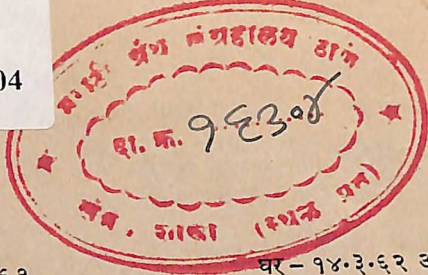 04
मराठी ग्रंथ संग्रहालय ठाणे
दा. क्र. १६३०४
शाखा (स्थळ प्रत)
घर – १४.३.६२